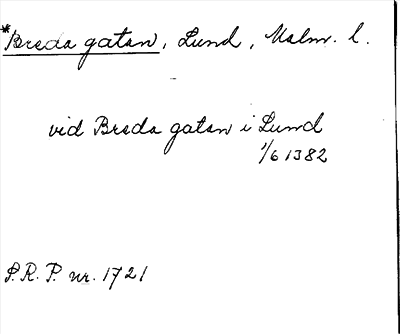 *Breda gatan, Lund, Malm. l.
vid Breda gatan i Lund
1/6 1382
S.R.P. nr. 1721